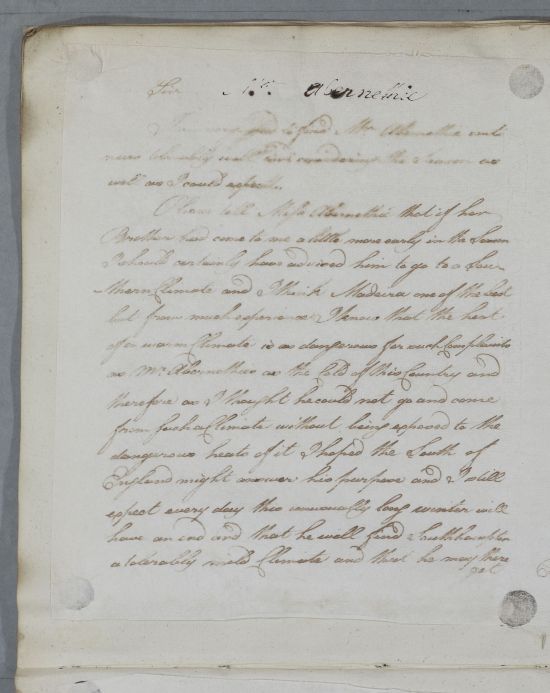 Sir Mr. Abernethie
I am very glad to find Mr Abernethie conti
nues tolerably well and considering the Season as
well as I could expect.
Please tell Miss Abernethie that if her
Brother had come to me a little more early in the Season
I should certainly have advised him to go to a Sou
thern Climate and I think Madeira one of the best
but from much experience I know that the heat
of a warm Climate is as dangerous for such Complaints
as Mr Abernethies as the Cold of this Country and
therefore as I thought he could not go and come
from such a Climate without being exposed to the
dangerous heats of it I hoped the South of
England might answer his purpose and I still
expect every day this unusually long winter will
have an end and that he will find Southhampton
a tolerably mild Climate and that he may there
get